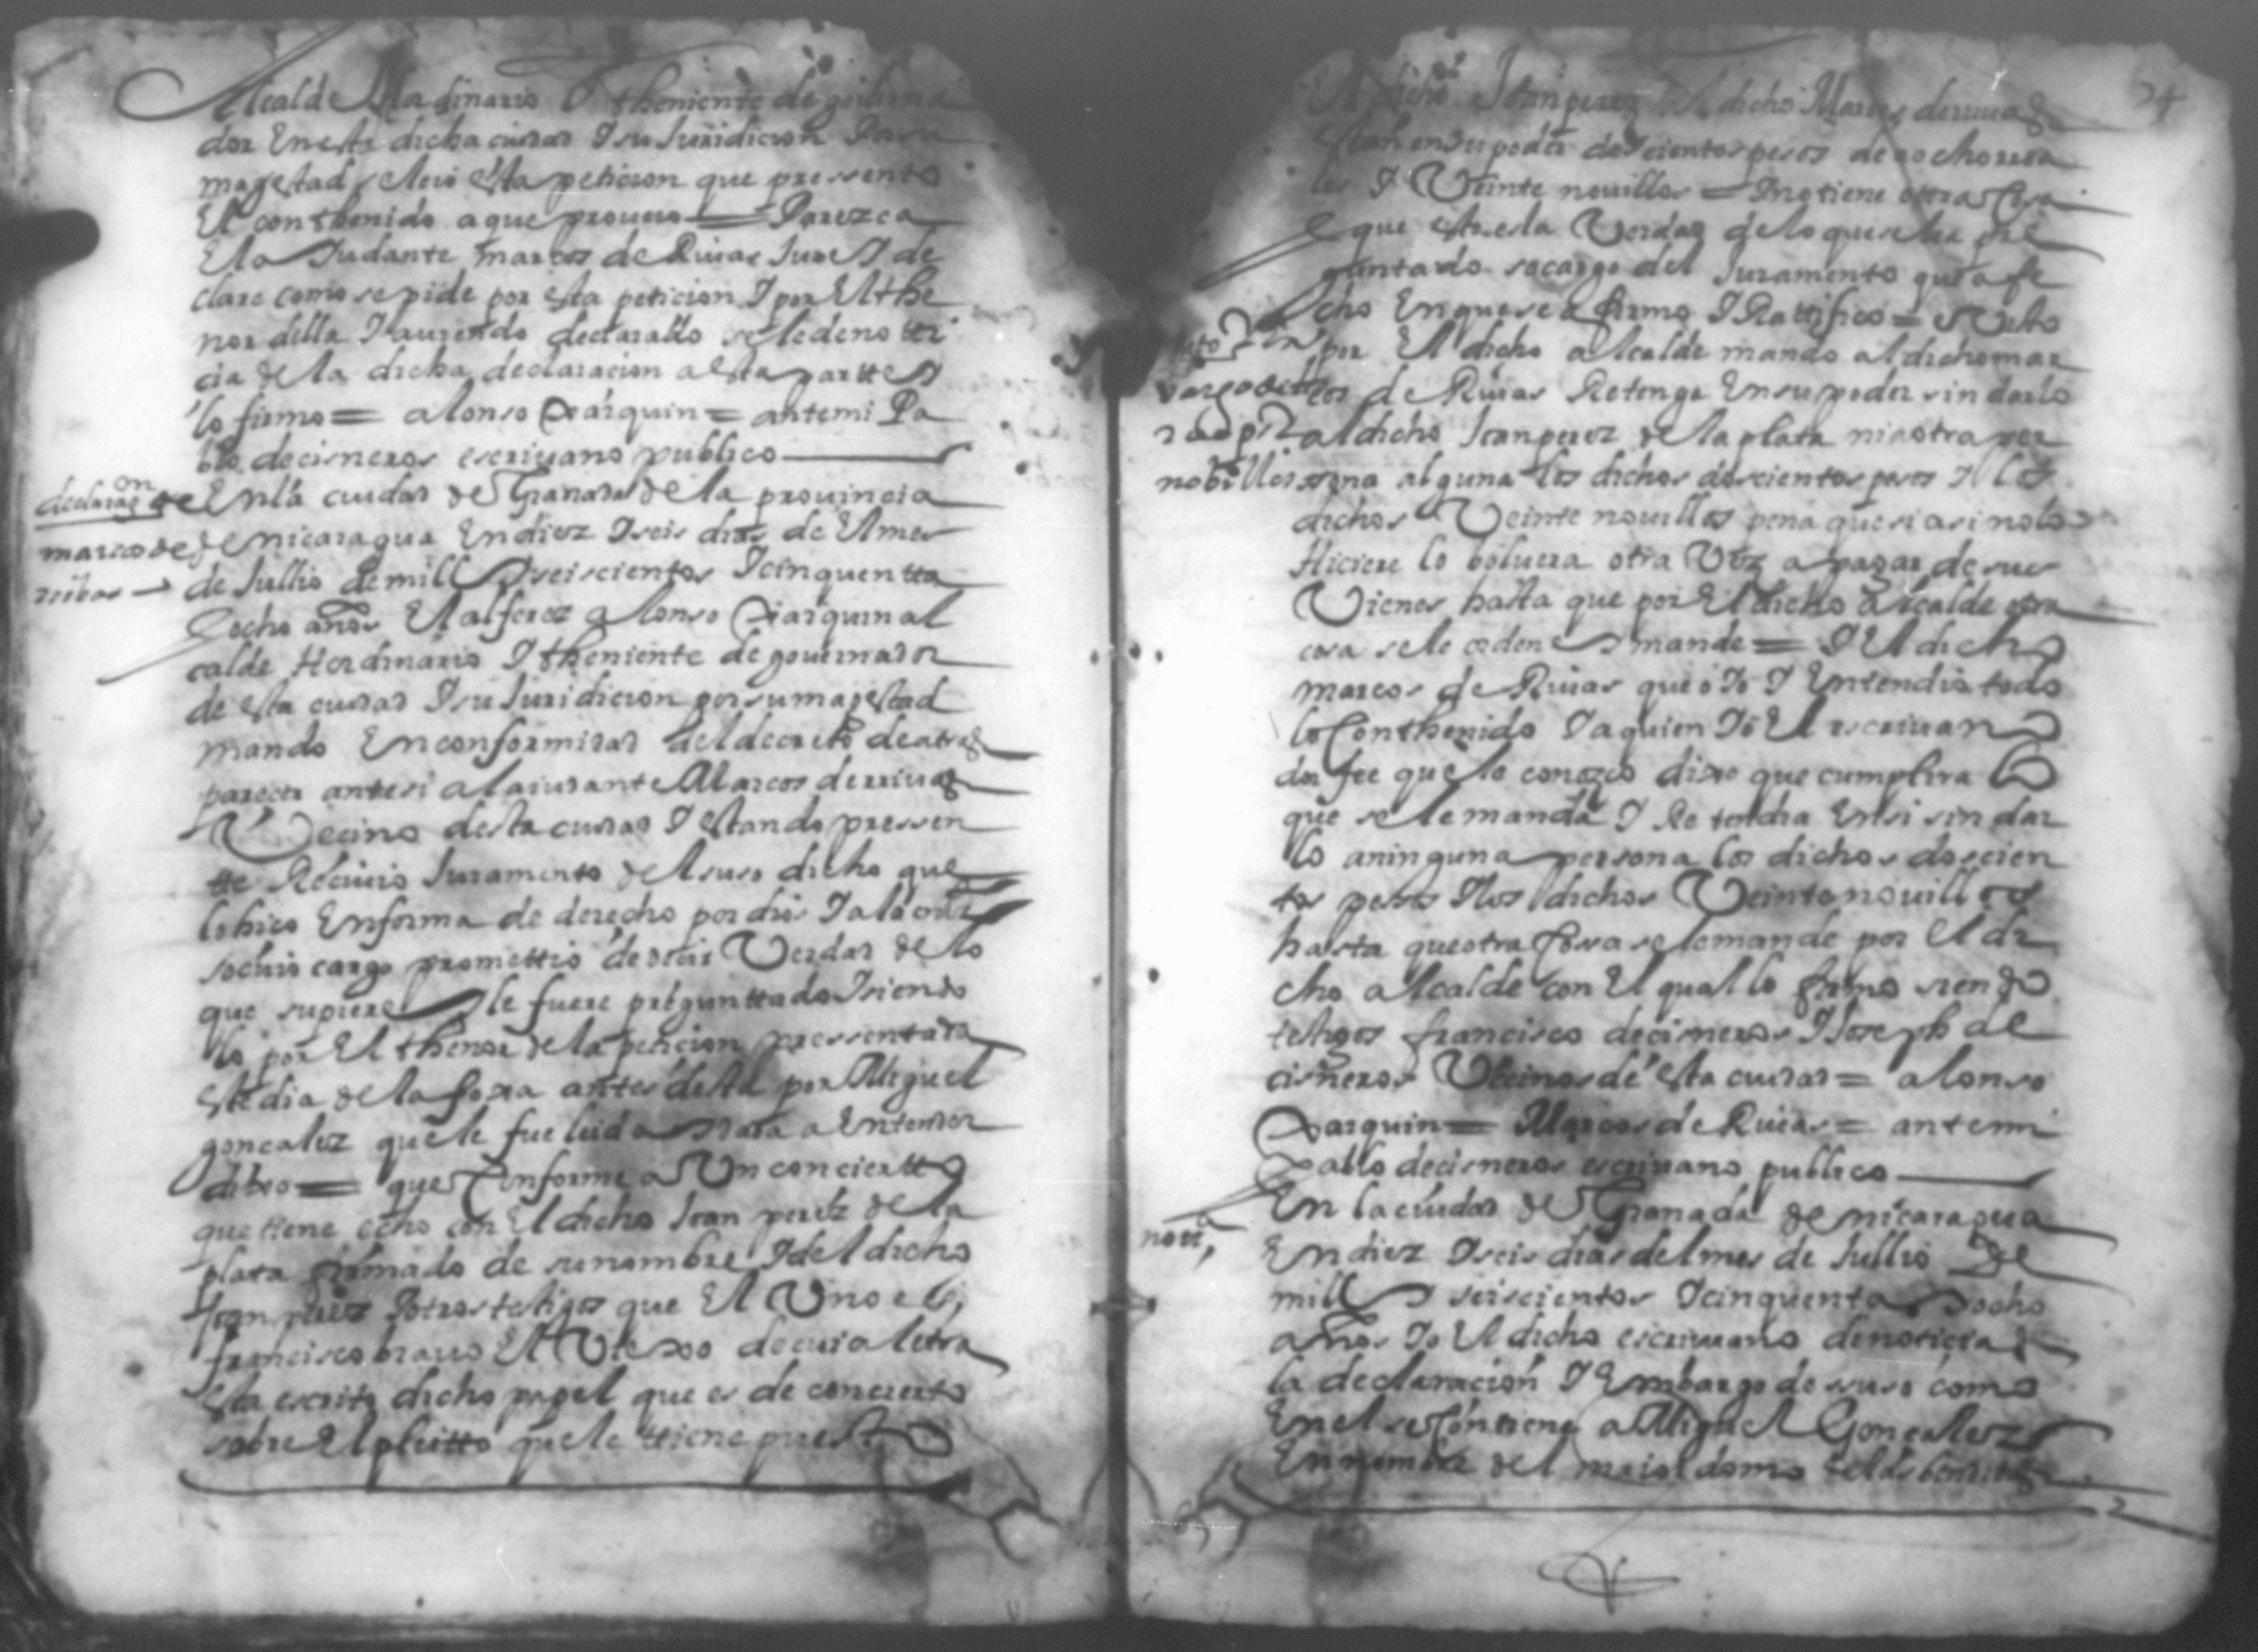 Alcalde Hordinario I theniente de gouerna
dor En esta dicha ciudad I su Juridicion Por su
magestad se leio esta peticion que pressento
El conthenido a que proueio = Parezca
El aiudante marcos de Riuas Jure I de
clare como se pide por esta peticion I por El the
nor della I auiendo declarado se le de noti
cia de la dicha declaracion a esta partte I
lo firmo = alonso Xarquin = ante mi Pa
blo de cisneros escriuano publico
declaraçon de
marcos de
ribas
En la ciudad de Granada de la prouincia
de nicaragua En diez I seis dias de El mes
de Jullio de mill I seiscientos I cinquentta
I ocho años El alferez alonso Xarquin al
calde Hordinario I theniente de gouernador
de esta ciudad I su Juridicion por su magestad
mando En conformidad del decreto de atras
parecer ante si al aiudante Marcos de rriuas
Vecino desta ciudad I estando pressen
tte Reciuio Juramento del suso dicho que
lo hico En forma de derecho por dios I a la cruz
so cuio cargo promettio de decir Verdad de lo
que supiere I le fuere preguntado I siendo
lo por El thenor de la peticion pressentada
este dia de la foxa antes desta por Miguel
goncalez que le fue leida I dada a Entender
dixo = que Conforme a Un conciertto
que tiene echo con El dicho Joan perez de la
plata firmado de su nombre I del dicho
Joan perez I otros testigos que El Uno es
francisco brauo El Viexo de cuia letra
esta escrito dicho papel que es de concierto
sobre El pleitto que le ttiene puesto
24
El dicho Joan perez al dicho Marcos de rriuas
estan en su poder doscientos pesos de a ocho rrea
les I Veinte nouillos = I no tiene otra Cosa
I que esta es la Verdad de lo que se le a pre
guntado so cargo del Juramento que a fe
cho En que se afirmo I Ratifico = I Visto
por El dicho alcalde mando al dicho mar
cos de Riuas Retenga En su poder sin darlo
al dicho Joan perez de la plata ni a otra per
sona alguna los dichos doscientos pesos I los
nobillos
dichos Veinte nouillos pena que si asi no lo
Hiciere lo boluera otra Vez a pagar de sus
Vienes hasta que por El dicho alcalde otra
cosa se le ordene I mande = I El dicho
marcos de Riuas que oio I Entendio todo
lo Conthenido I a quien Io El escriuano
doi fee que lo conozco dixo que cumplira lo
que se le manda I Retendra En si sin dar
lo a ninguna persona los dichos doscien
tos pesos I los dichos Veinte nouillos
hasta que otra Cosa se le mande por El di
cho alcalde con El qual lo firmo siendo
testigos francisco de cisneros I Joseph de
cisneros Vecinos de esta ciudad = alonso
Xarquin = Marcos de Riuas = ante mi
Pablo de cisneros escriuano publico
notta
En la ciudad de Granada de nicaragua
En diez I seis dias del mes de Jullio de
mill I seiscientos I cinquenta I ocho
años Io El dicho escriuano di noticia de
la declaracion I Embargo de suso como
En el se Contiene a Miguel Goncalez
En nombre del maioldomo de las benditas